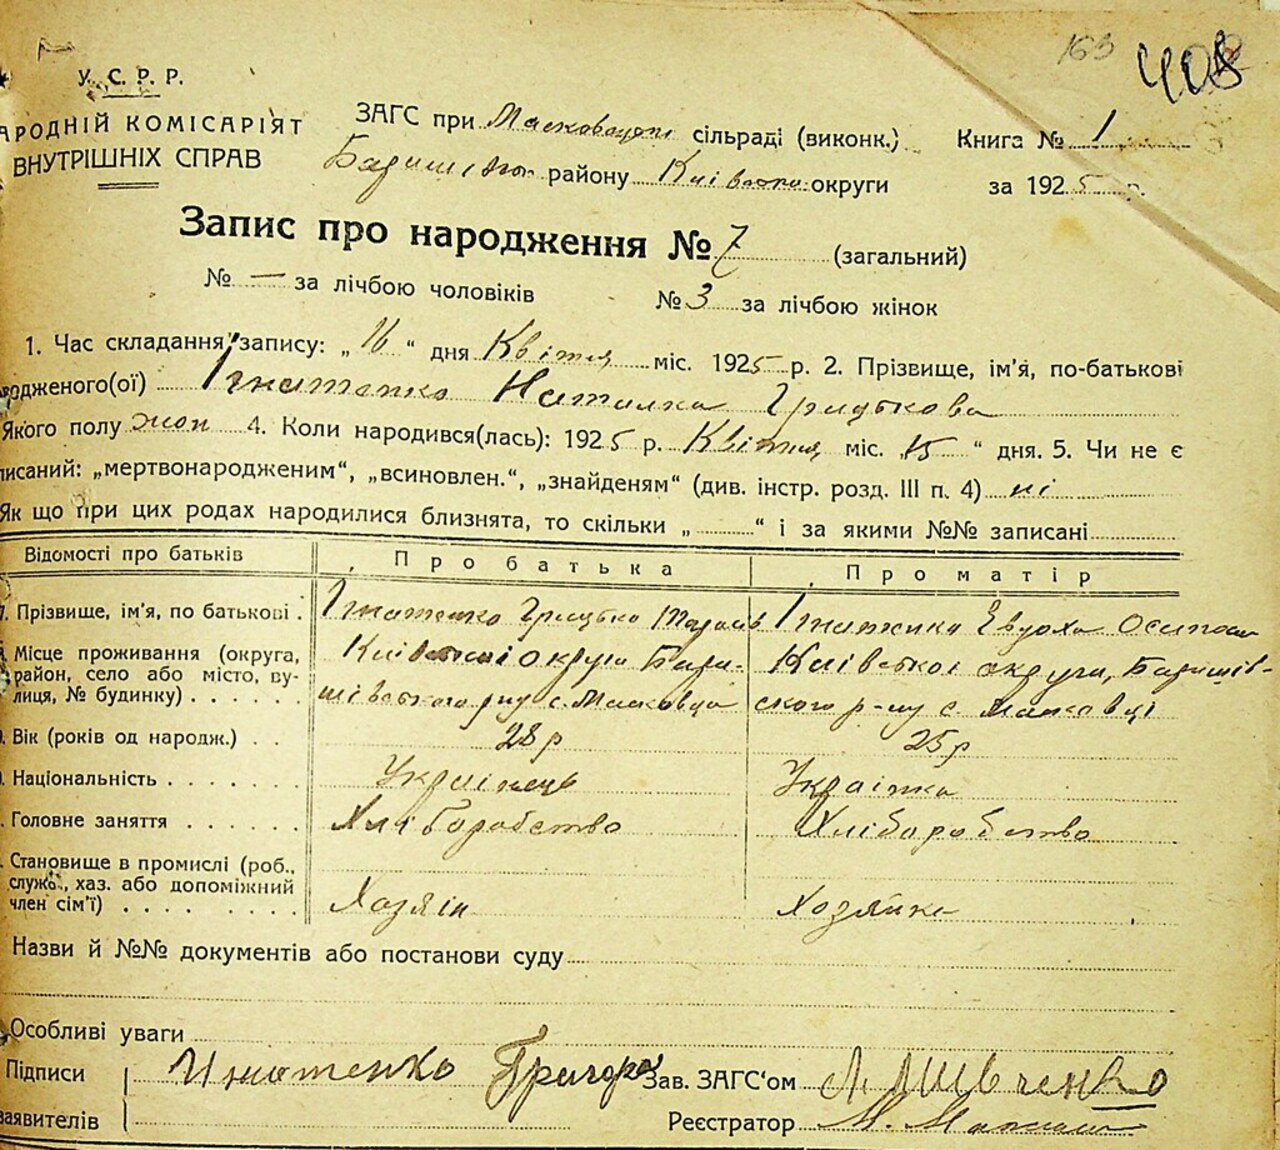 163 408
У. С. Р. Р.
АРОДНІЙ КОМІСАРІЯТ
ВНУТРІШНІХ СПРАВ
ЗАГС при сільраді (виконк.) Книга № 1
району округи за 1925 р.
Запис про народження № 7 (загальний)
№ — за лічбою чоловіків № 3 за лічбою жінок
1. Час складання запису: „16“ дня Квітня міс. 1925 р. 2. Прізвище, ім'я, по-батькові
одженого(ої) Ігнатенко Наталка Грицькова
Якого полу жон 4. Коли народився(лась): 1925 р. Квітня міс. „15“ дня. 5. Чи не є
писаний: „мертвонародженим“, „всиновлен.“, „знайденям“ (див. інстр. розд. III п. 4) ні
Як що при цих родах народилися близнята, то скільки „ “ і за якими №№ записані
Відомості про батьків Про батька Про матір
7. Прізвище, ім'я, по батькові . Ігнатенко Грицько Тарасів Ігнатенко Євдоха
Місце проживання (округа, Київської округи Бари- Київської округи, Баришів-
район, село або місто, ву-
лиця, № будинку) . . . . . . шівського р-ну с. Масковці ського р-ну с. Масковці
Вік (років од народж.) . . 28 р 25 р
Національність . . . . . . . Українець Українка
Головне заняття . . . . . . Хліборобство Хлiборобство
Становище в промислі (роб.,
служб., хаз. або допоміжний
член сім'ї) . . . . . . . . Хозяін Хозяйка
Назви й №№ документів або постанови суду
Особливі уваги
Підписи Игнотенко Григорій Зав. ЗАГС'ом Шевченко
заявителів Реєстратор М.